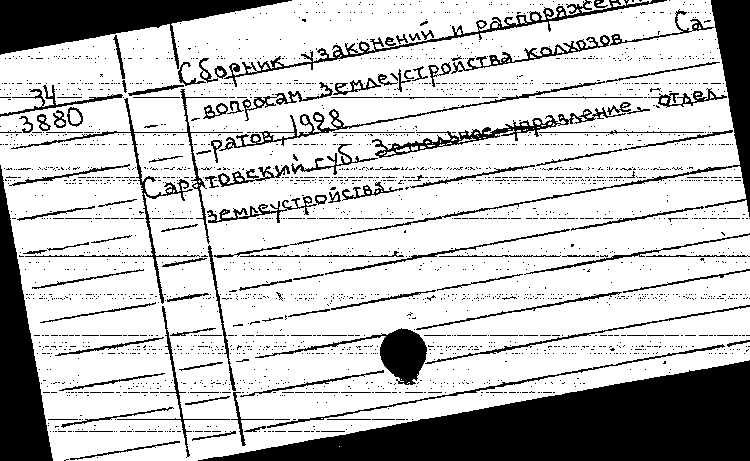 Сборник узаконений и распоряжени
34
3880
вопросам землеустройства колхозов. Са-
ратов, 1928
Саратовский губ. Земельное управление. отдел
землеустройства.